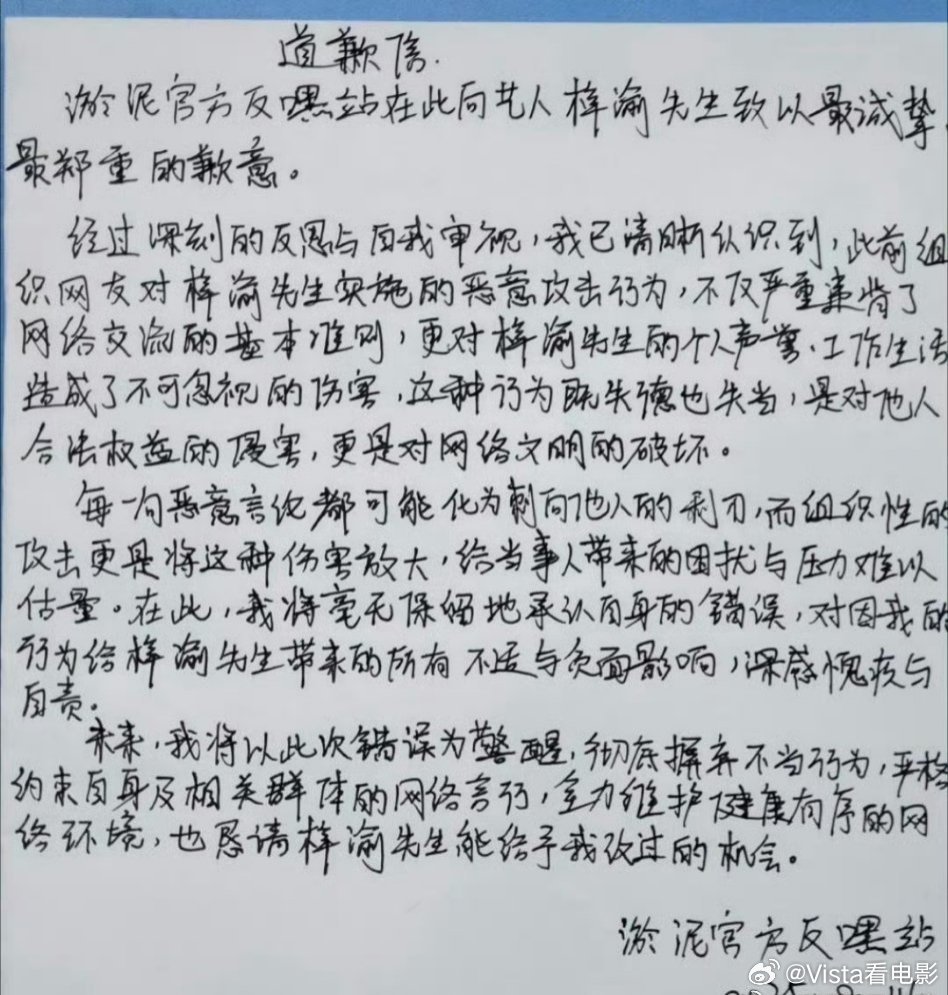 道歉信.
淤泥官方反嘿站在此向艺人梓渝先生致以最诚挚、
最郑重的歉意。
经过深刻的反思与自我审视，我已清晰认识到，此前组
织网友对梓渝先生实施的恶意攻击行为，不仅严重违背了
网络交流的基本准则，更对梓渝先生的个人声誉、工作生活
造成了不可忽视的伤害，这种行为既失德也失当，是对他人
合法权益的侵害，更是对网络文明的破坏。
每一句恶意言论都可能化为刺向他人的利刃，而组织性的
攻击更是将这种伤害放大，给当事人带来的困扰与压力难以
估量。在此，我将毫无保留地承认自身的错误，对因我的
行为给梓渝先生带来的所有不适与负面影响，深感愧疚与
自责。
未来，我将以此次错误为警醒，彻底摒弃不当行为，严格
约束自身及相关群体的网络言行，全力维护健康有序的网
络环境，也恳请梓渝先生能给予我改过的机会。
淤泥官方反嘿站
@Vista看电影